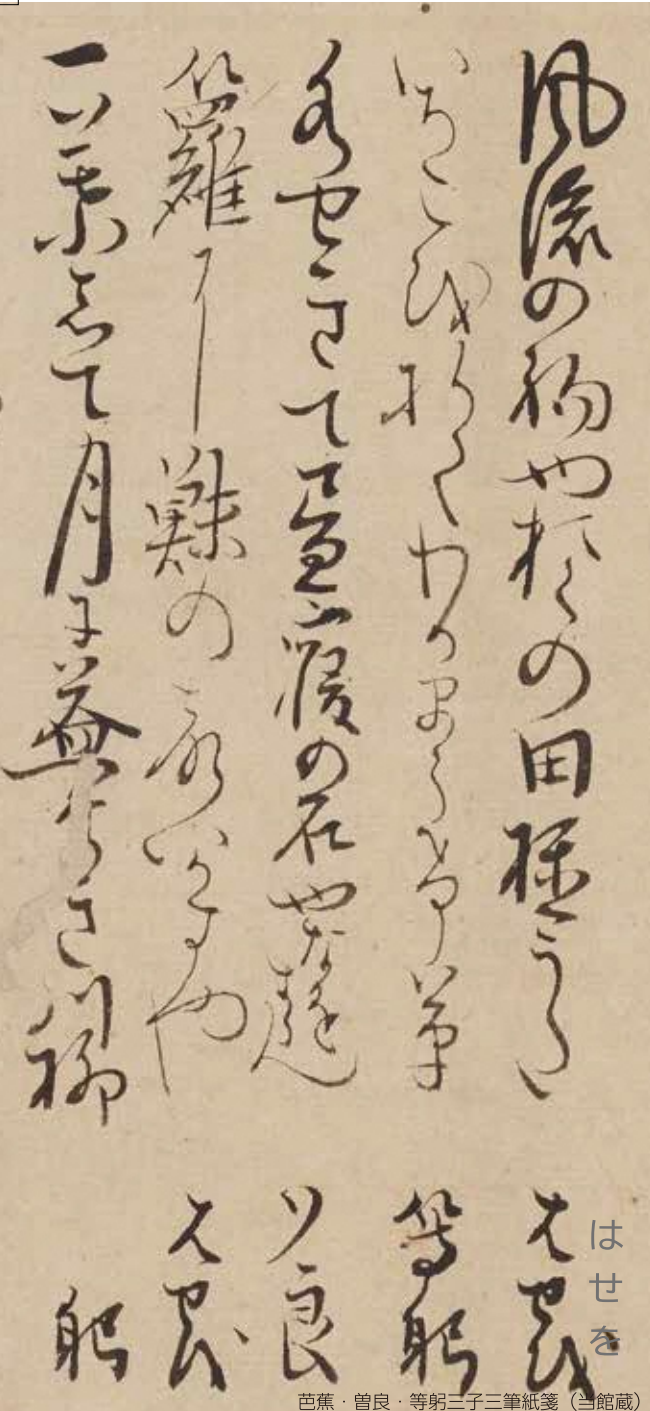 風流の初やおくの田植うた はせを
はせを
いちこを折てわかまうけ草 等躬
水せきて昼寝の石やなをすらん ソ良
籮に鰍の声いかす也 はせを
一葉して月に益なき川柳 躬
芭蕉・曽良・等躬三子三筆紙箋（当館蔵）